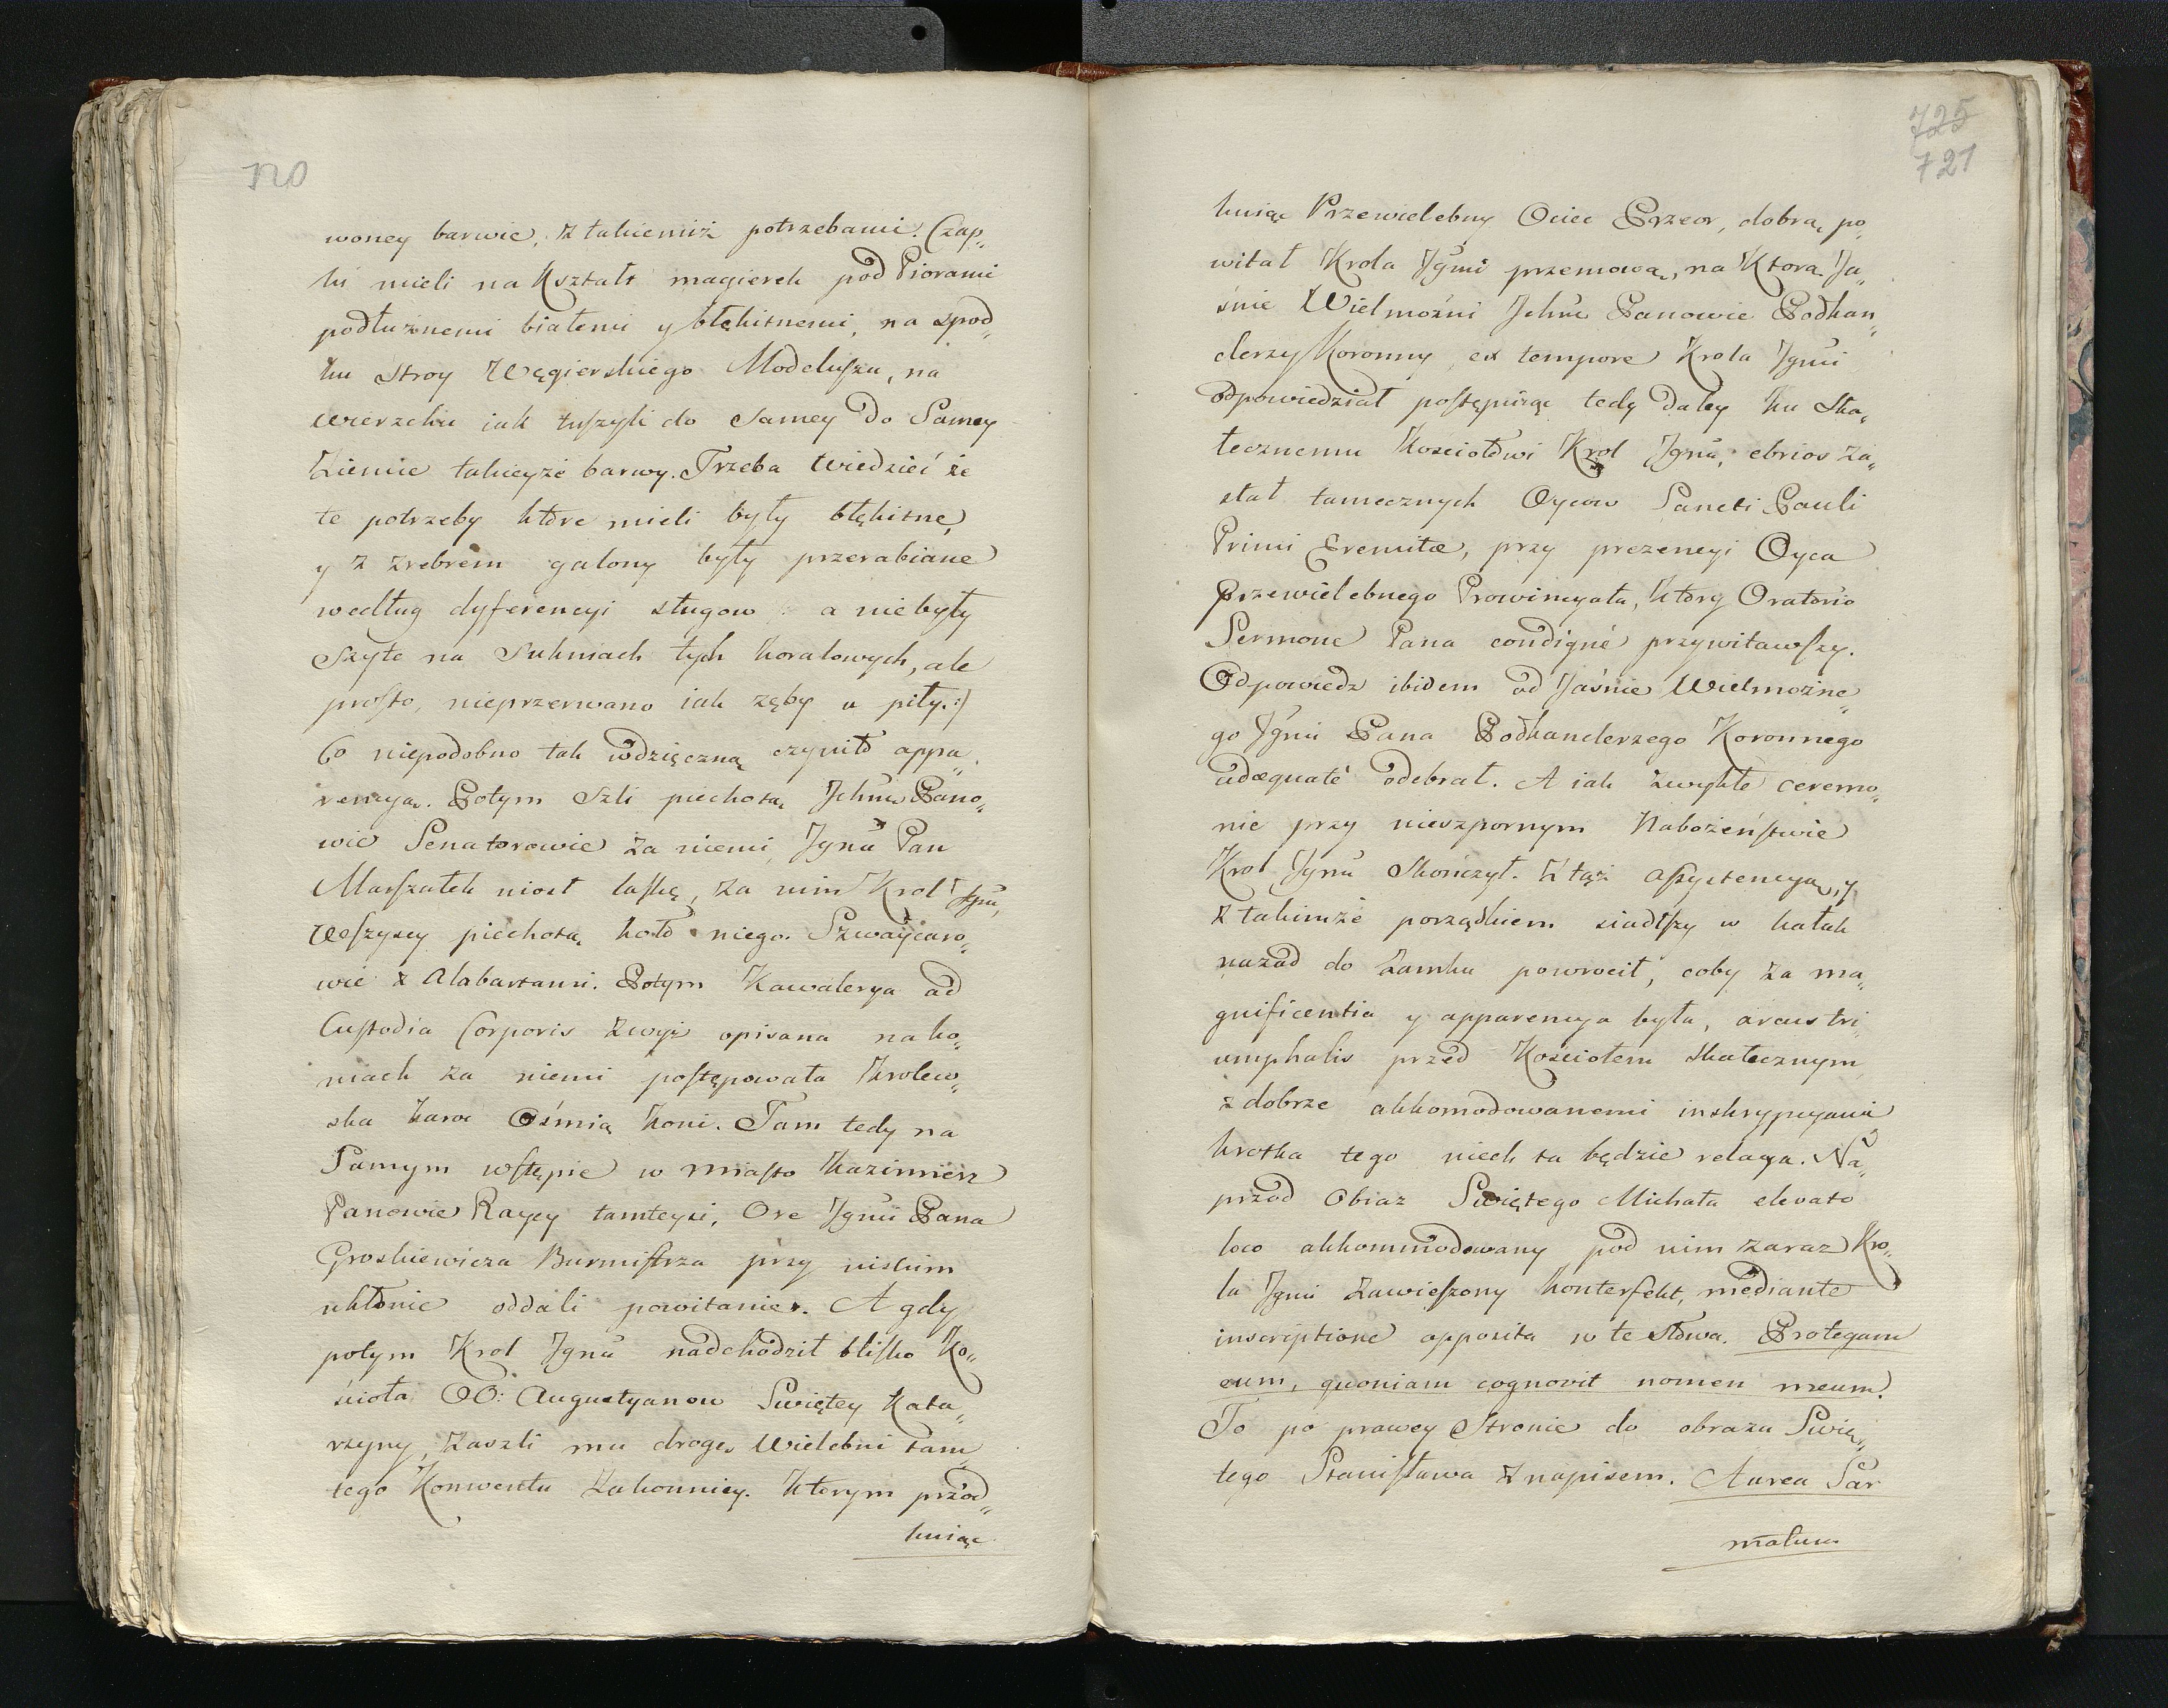 720
woney barwie, z takiemiż potrzebami. Czap„
ki mieli na Kształt magierek pod Piorami
podłużnemi białemi y błękitnemi, na spod„
ku Stroy Węgierskiego Modeluszu, na
wierzchu iak tuszyli do Samey do Samey
Ziemie takieyże barwy. Trzeba Wiedzieć że
te potrzeby ktore mieli były błękitne,
y z zrebrem galony były przerabiane
według dyferencyi sługow a niebyły
Szyte na Sukniach tych koralowych, ale
prosto, nieprzerwano iak zęby u piły.:)
Co niepodobno tak wdzięczną czyniło appa„
rencyą. Potym Szli piechotą Jchmć Pano„
wie Senatorowie za niemi Jgmć Pan
Marszałek niosł laskę, za nim Krol Jgmć,
Wszyscy piechotą koło niego. Szwaycaro„
wie z Alabartami. Potym Kawalerya ad
Custodia Corporis zwyż opisana na ko„
niach za niemi postępowała Krolew„
ska kara Ośmią koni. Tam tedy na
Samym wstępie w miasto Kazimierz
Panowie Raycy tamteysi, Ore Jgmci Pana
Groskiewicza Burmistrza przy niskim
ukłonie oddali powitanie. A gdy
potym Krol Jgmć nadchodził blisko Ko„
scioła OO: Augustyanow Swiętey Kata„
rzyny, zaszli mu drogę Wielebni tam„
tego Konwentu Zakonnicy. Ktorym przod„
kuiąc
725
721
kuiąc Przewielebny Ociec Przeor, dobrą po„
witał Krola Jgmci przemową, na Ktorą Ja„
śnie Wielmożni Jchmć Panowie Podkan„
clerzy Koronny ex tempore Krola Jgmci
odpowiedział postępuiąc tedy daley ku Ska„
łecznemu Kosciołowi Krol Jgmć, ebrios za„
stał tamecznych Oycow Sancti Pauli
Primi Eremitæ, przy prezencyi Oyca
Przewielebnego Prowincyała, Ktory Oratorio
Sermone Pana condignè przywitawszy.
Odpowiedz ibidem od Jaśnie Wielmożne„
go Jgmci Pana Podkanclerzego Koronnego
adæquatè odebrał. A iak zwykłe ceremo„
nie przy nieszpornym Nabożeństwie
Krol Jgmć Skończył. Z tąż assystencyą, y
z takimże porządkiem siadłszy w kałak
nazad do Zamku powrocił, coby za ma„
gnificentia y apparencya była, arcus tri„
umphalis przed Kosciołem Skałecznym
z dobrze akkomodowanemi inskrypcyami
krotka tego niech ta będzie relacya. Na„
przod Obraz Swiętego Michała elevato
loco akkommodowany pod nim zaraz Kro„
la Jgmci zawieszony konterfekt, mediante
inscriptione apposita w te słowa. Protegam
eum, quoniam cognovit nomen meum.
To po prawey Stronie do obrazu Swię„
tego Stanisława z napisem. Aurea Sar
matum